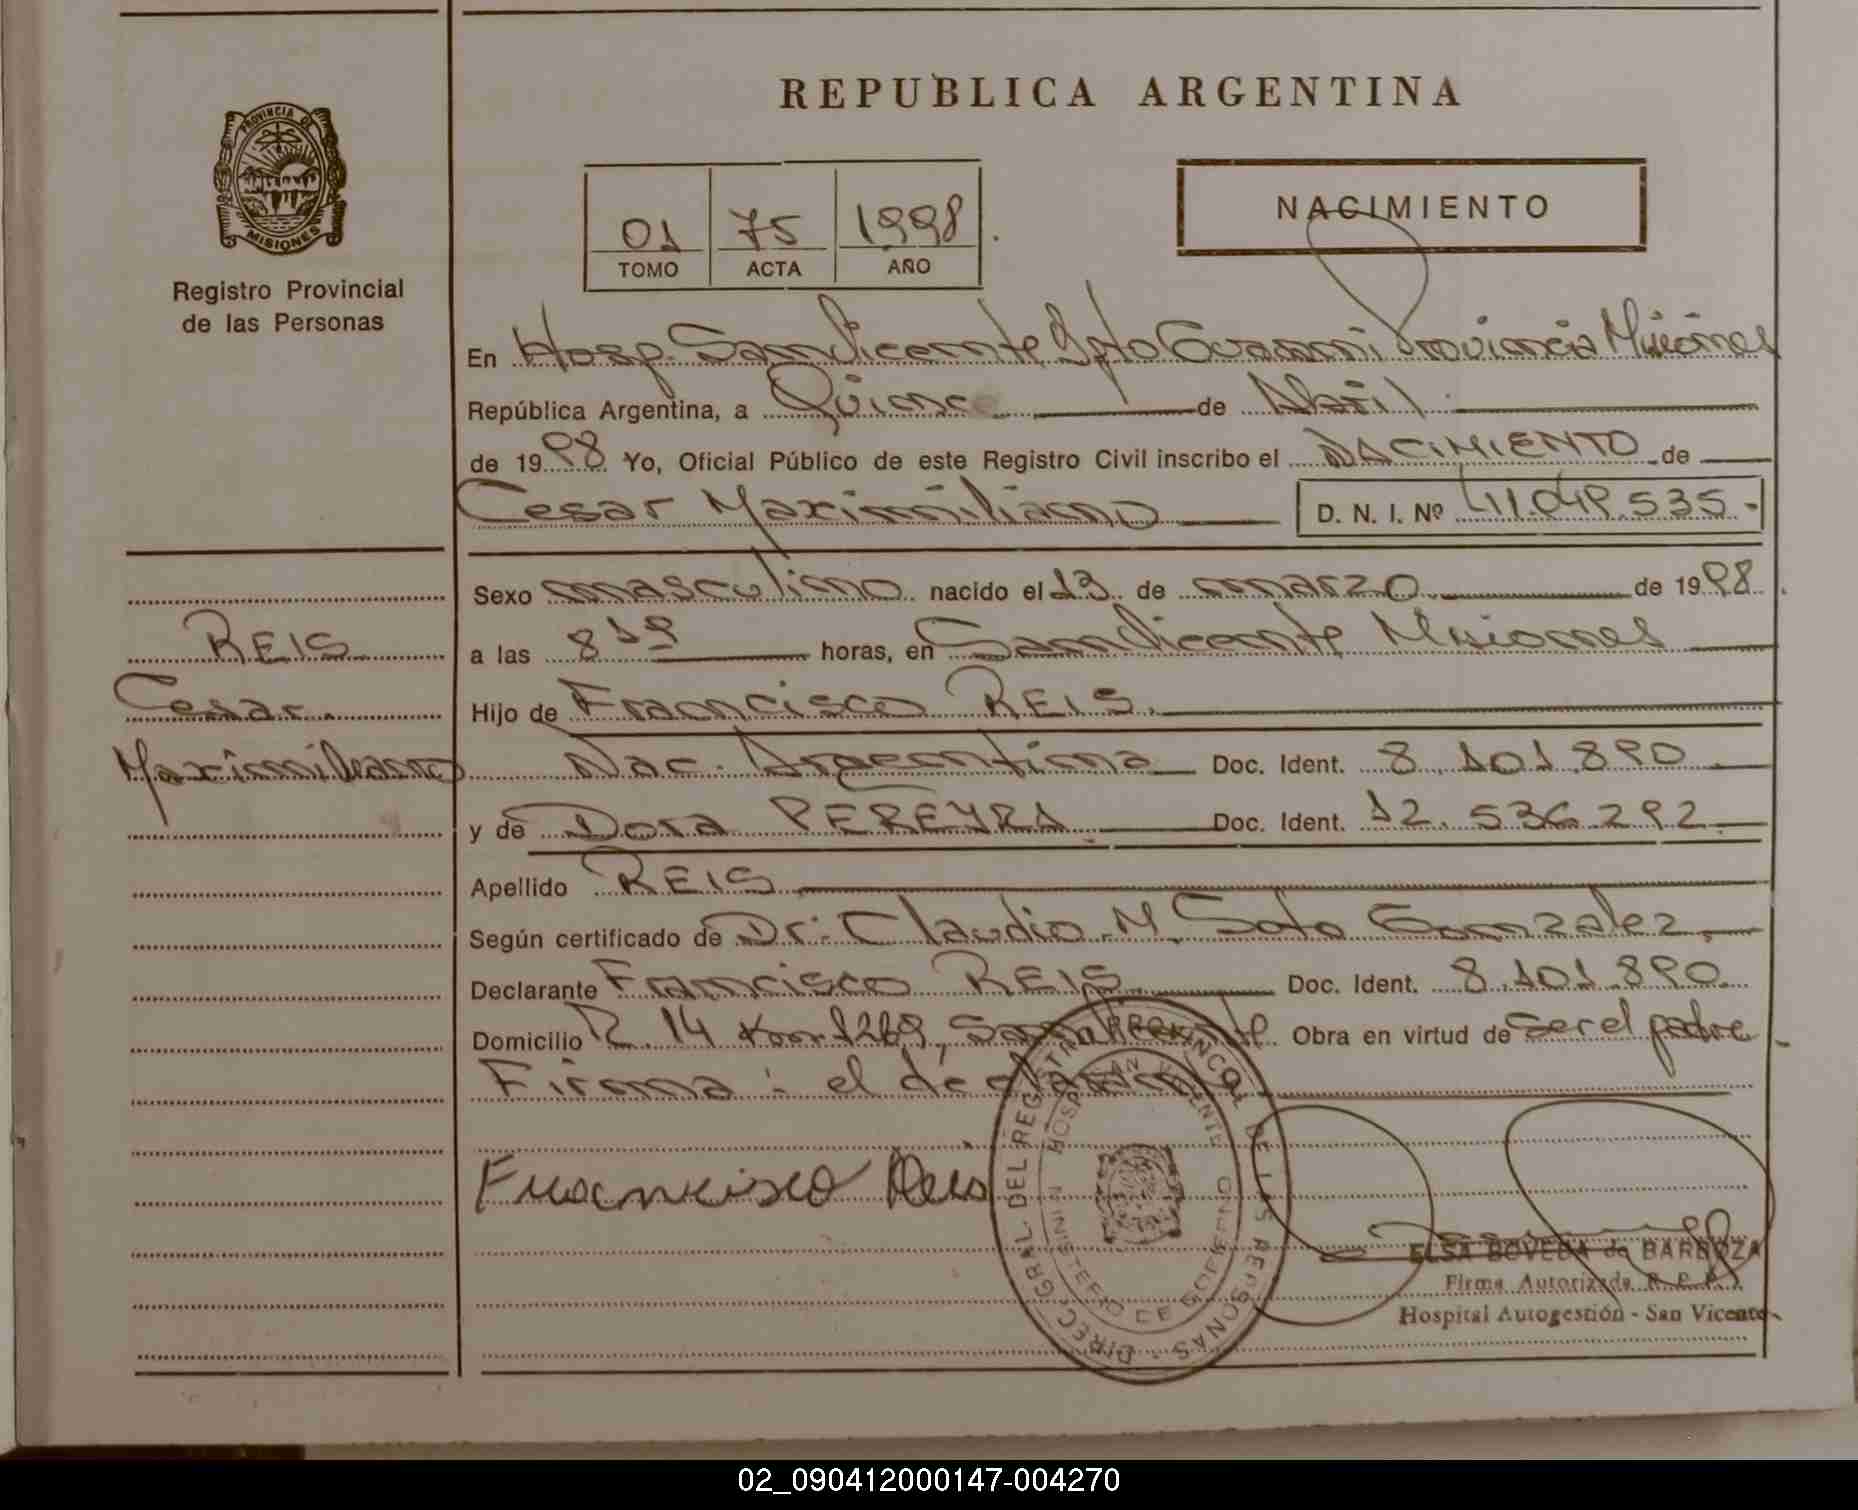 REPUBLICA ARGENTINA
PROVINCIA DE
MISIONES
Registro Provincial
de las Personas
01 75 1998
TOMO ACTA AÑO
NACIMIENTO
En Hosp. San Vicente Dpto Guarani Provincia Misiones
República Argentina, a Quince de Abril
de 1998 Yo, Oficial Público de este Registro Civil inscribo el NACIMIENTO de
Cesar Maximiliano D. N. I. Nº 41.049.535-
Sexo masculino nacido el 13 de marzo de 1998
a las 8 10 horas, en San Vicente Misiones
REIS
Cesar
Maximiliano
Hijo de Francisco REIS.
Nac. Argentina Doc. Ident. 8.101.890
y de Dora PEREYRA Doc. Ident. 12.536.292
Apellido REIS
Según certificado de Dr. Claudio M. Soto Gonzalez
Declarante Francisco REIS Doc. Ident. 8.101.890
Domicilio R. 14 Km 1269, San Vicente. Obra en virtud de ser el padre
Firma: el declarante
Francisco Reis
DIREC. GRAL. DEL REGISTRO PROVINCIAL DE LAS PERSONAS
HOSPITAL SAN VICENTE
MINISTERIO DE GOBIERNO
ELSA BOVEDA de BARBOZA
Firma Autorizada R. P. P.
Hospital Autogestión - San Vicente
02_090412000147-004270